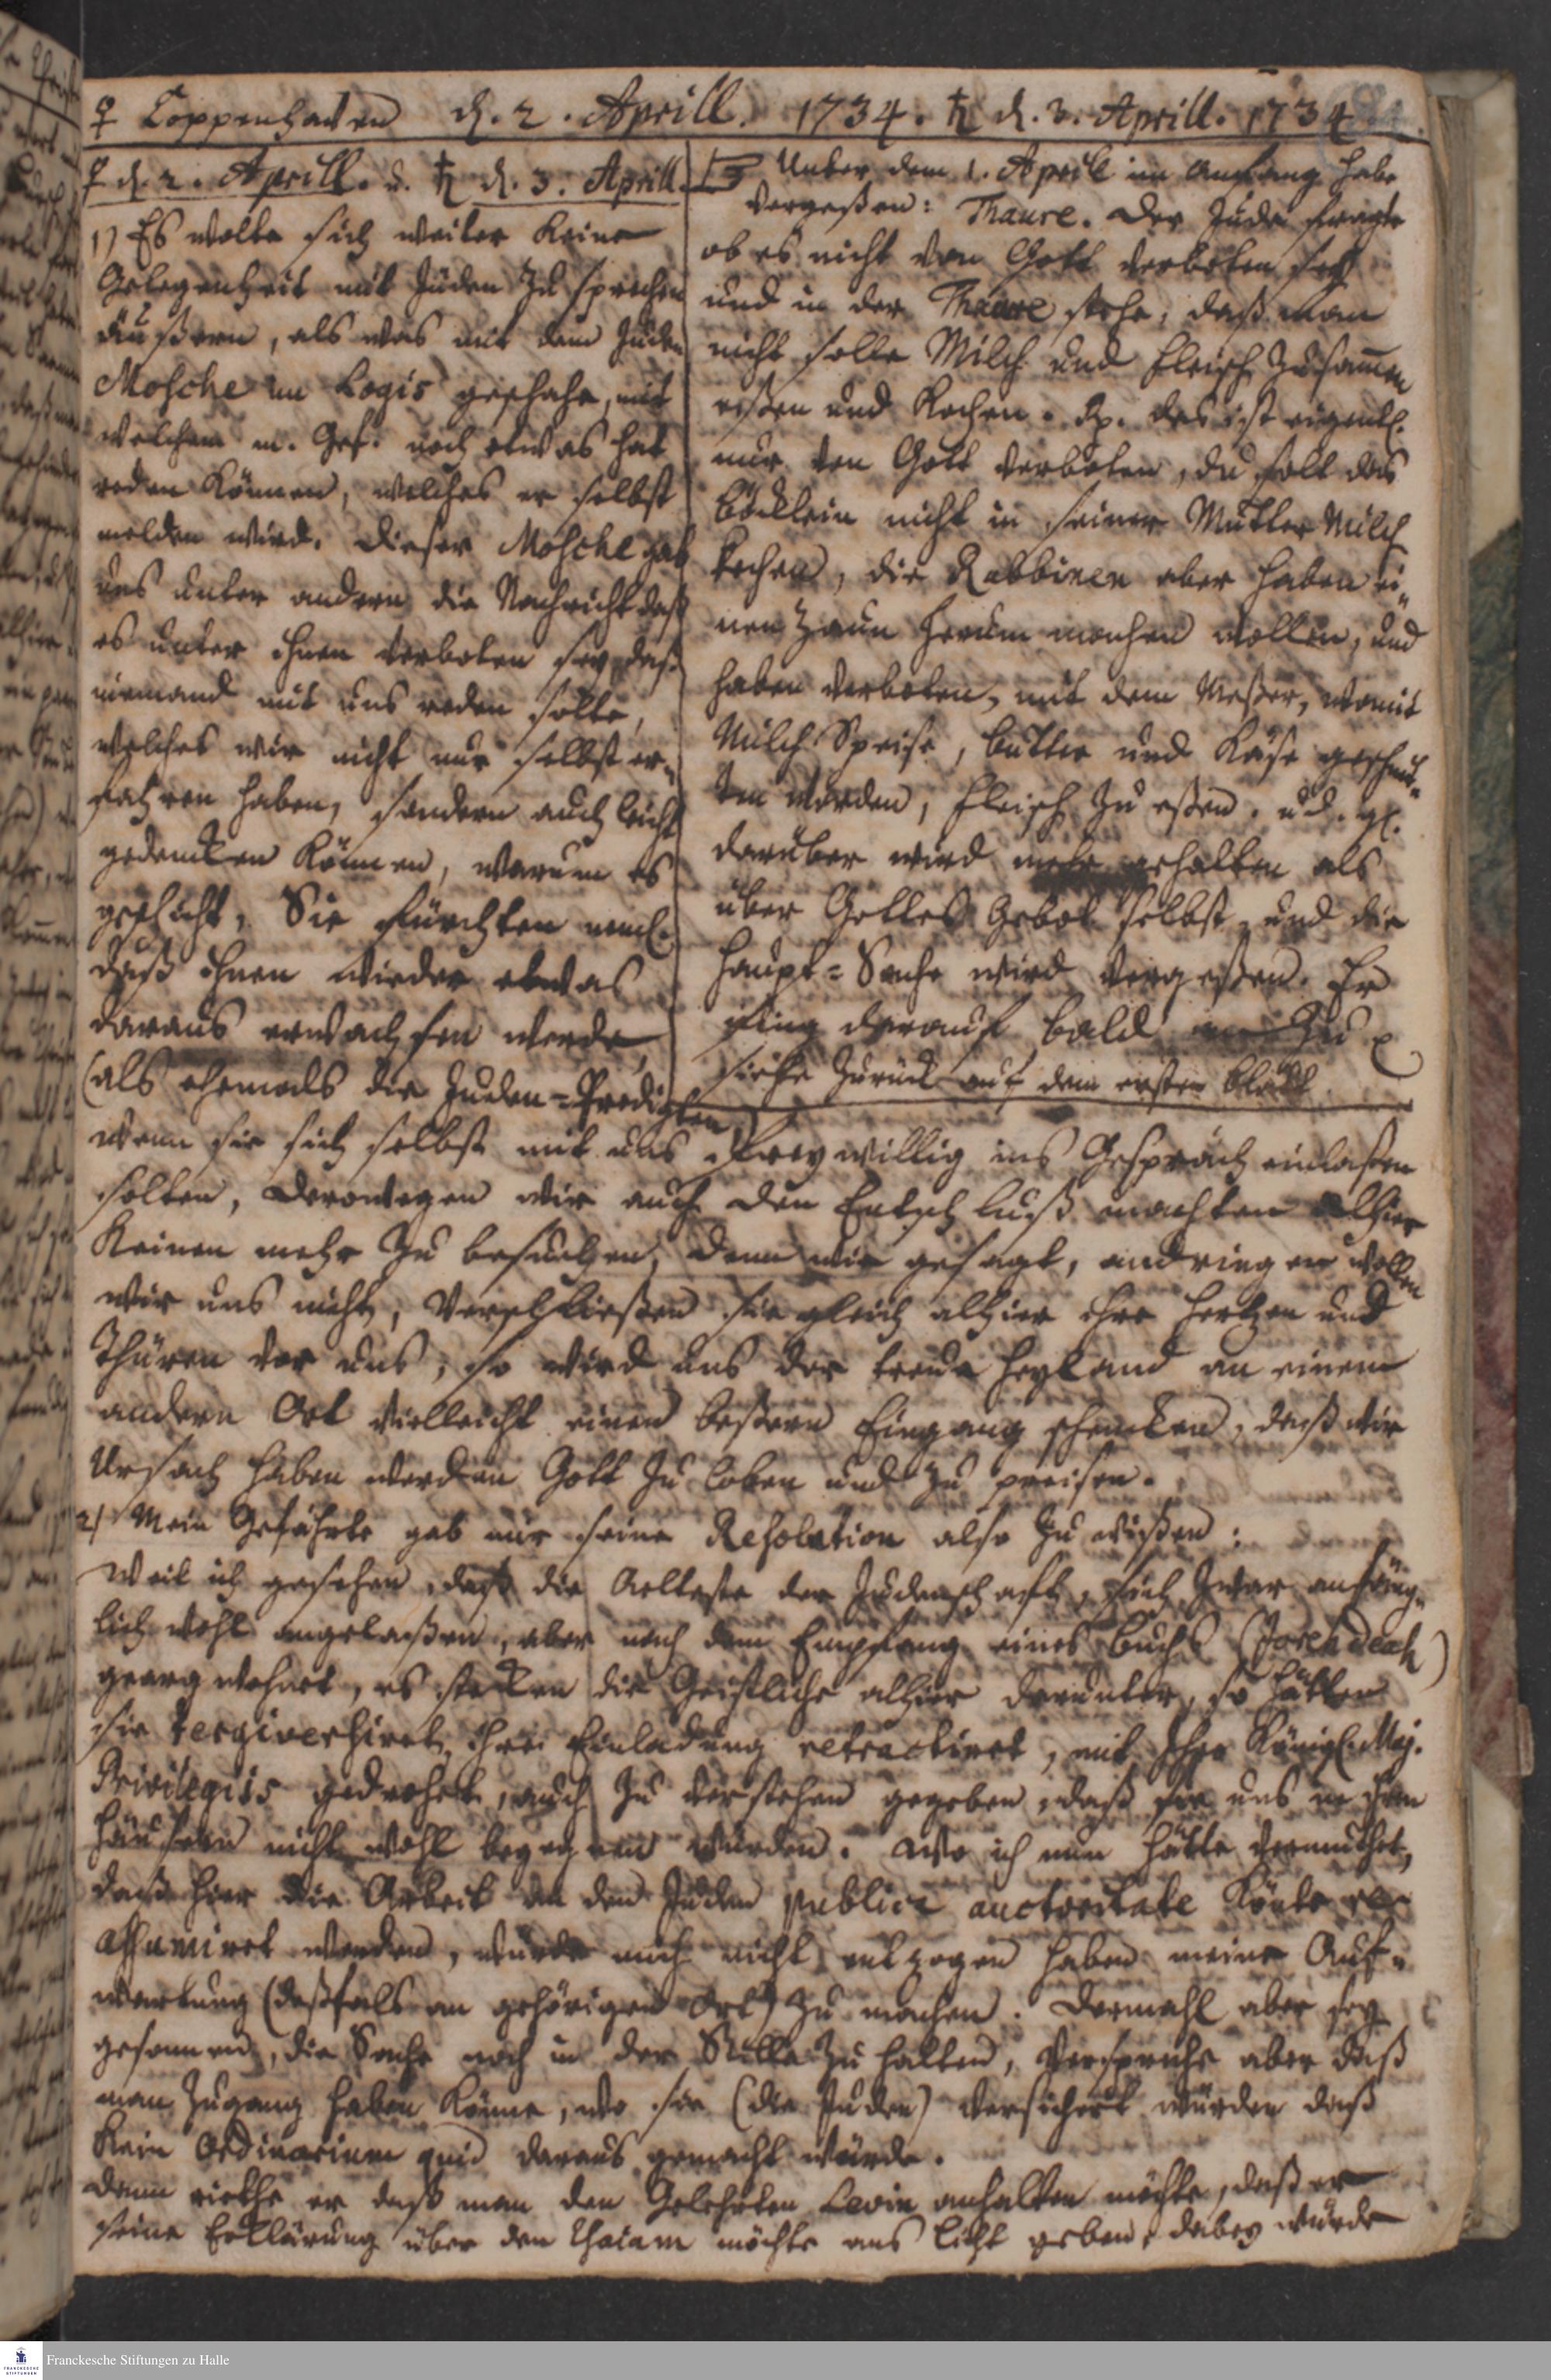 ♀ Coppenhaven d. 2. Aprill. 1734. ♄ d. 3. Aprill. 1734
♀ d. 2. Aprill. u. ♄ d. 3. Aprill.
1) Es wolte sich weiter keine
Gelegenheit mit Juden zu sprechen
äußern, als was mit dem Juden
Mosche im Logis geschahe, mit
welchem m. Gef. noch etwas hat
reden können, welches er selbst
melden wird. Dieser Mosche gab
uns unter andern die Nachricht daß
es unter ihnen verboten sey, daß
niemand mit uns reden solte,
welches wir nicht nur selbst er-
fahren haben, sondern auch leicht
gedencken können, warum es
geschicht, Sie fürchten neml.
daß ihnen wieder etwas
daraus erwachsen werde,
(als ehemals die Juden-Predigten)
☞ Unter dem 1. Aprill im Anfang habe
vergeßen: Thaure. Der Jude fragte
ob es nicht von Gott verboten sey
und in der Thaure stehe, daß man
nicht solle Milch und Fleisch zusammen
eßen und kochen. Rp. das ist eigentl.
nur von Gott verboten, du solt das
Böcklein nicht in seiner Mutter Milch
kochen, die Rabbinen aber haben ei-
nen Zaun herum machen wollen, und
haben verboten, mit dem Meßer, womit
Milch Speise, Butter und Käse geschnit-
ten worden, Fleisch zu eßen. u. d. gl.
darüber wird mehr gehalten als
über Gottes Gebot selbst, und die
Haupt-Sache wird vergeßen. Er
fing darauf bald an zu
siehe zurück auf dem ersten Blatt
wenn sie sich selbst mit uns freywillig ins Gespräch einlaßen
solten, Derowegen wir auch den Entschluß machten alhier
keinen mehr zu besuchen, denn wie gesagt, andringen wollen
wir uns nicht, Verschließen sie gleich alhier ihre Hertzen und
Thüren vor uns, so wird uns der treue Heyland an einem
andern Ort vielleicht einen beßern Eingang schencken, daß wir
Ursach haben werden Gott zu loben und zu preisen.
2) Mein Gefährte gab mir seine Resolution also zu wißen:
Weil ich gesehen, daß die Aelteste der Judenschafft, sich zwar anfäng-
lich wohl angelaßen, aber nach dem Empfang eines Buchs (Joreh deah)
geargwohnet, es stecken die Geistliche alhier darunter, so hätten
sie tergiversiret, ihre Einladung retractiret, mit Ihro Königl. Maj.
Privilegiis gedrohet, auch zu verstehen gegeben, daß sie uns in ihren
Häusern nicht wohl begegnen würden. Wo ich nun hätte vermuthet,
daß hier die Arbeit an den Juden publica auctoritate könte re-
assumiret werden, würde mich nicht entzogen haben meine Auf-
wartung (deßfals an gehörigen Ort) zu machen. Dermahl aber sey
gesonnen, die Sache noch in der Stille zu halten, Verspreche aber daß
man Zugang haben könne, wo sie (die Juden) versichert würden daß
kein Ordinarium quid daraus gemacht würde.
Dann riethe er daß man den Gelehrten Levin anhalten möchte, daß er
seine Erklärung über den Chaiam möchte ans Licht geben, dabey würde
Franckesche Stiftungen zu Halle